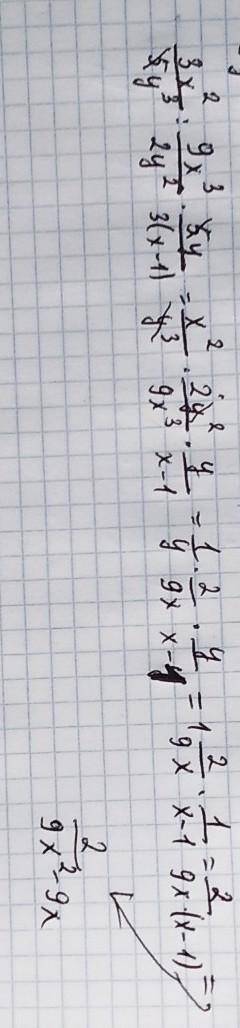 3x²/5y³ : 9x³/2y² · 5y/3(x-1) = x²/y³ · 2y²/9x³ · y/x-1 = 1/y · 2/9x · y/x-1 = 1 2/9x · 1/x-1 = 2/9x(x-1) =
2/9x²-9x